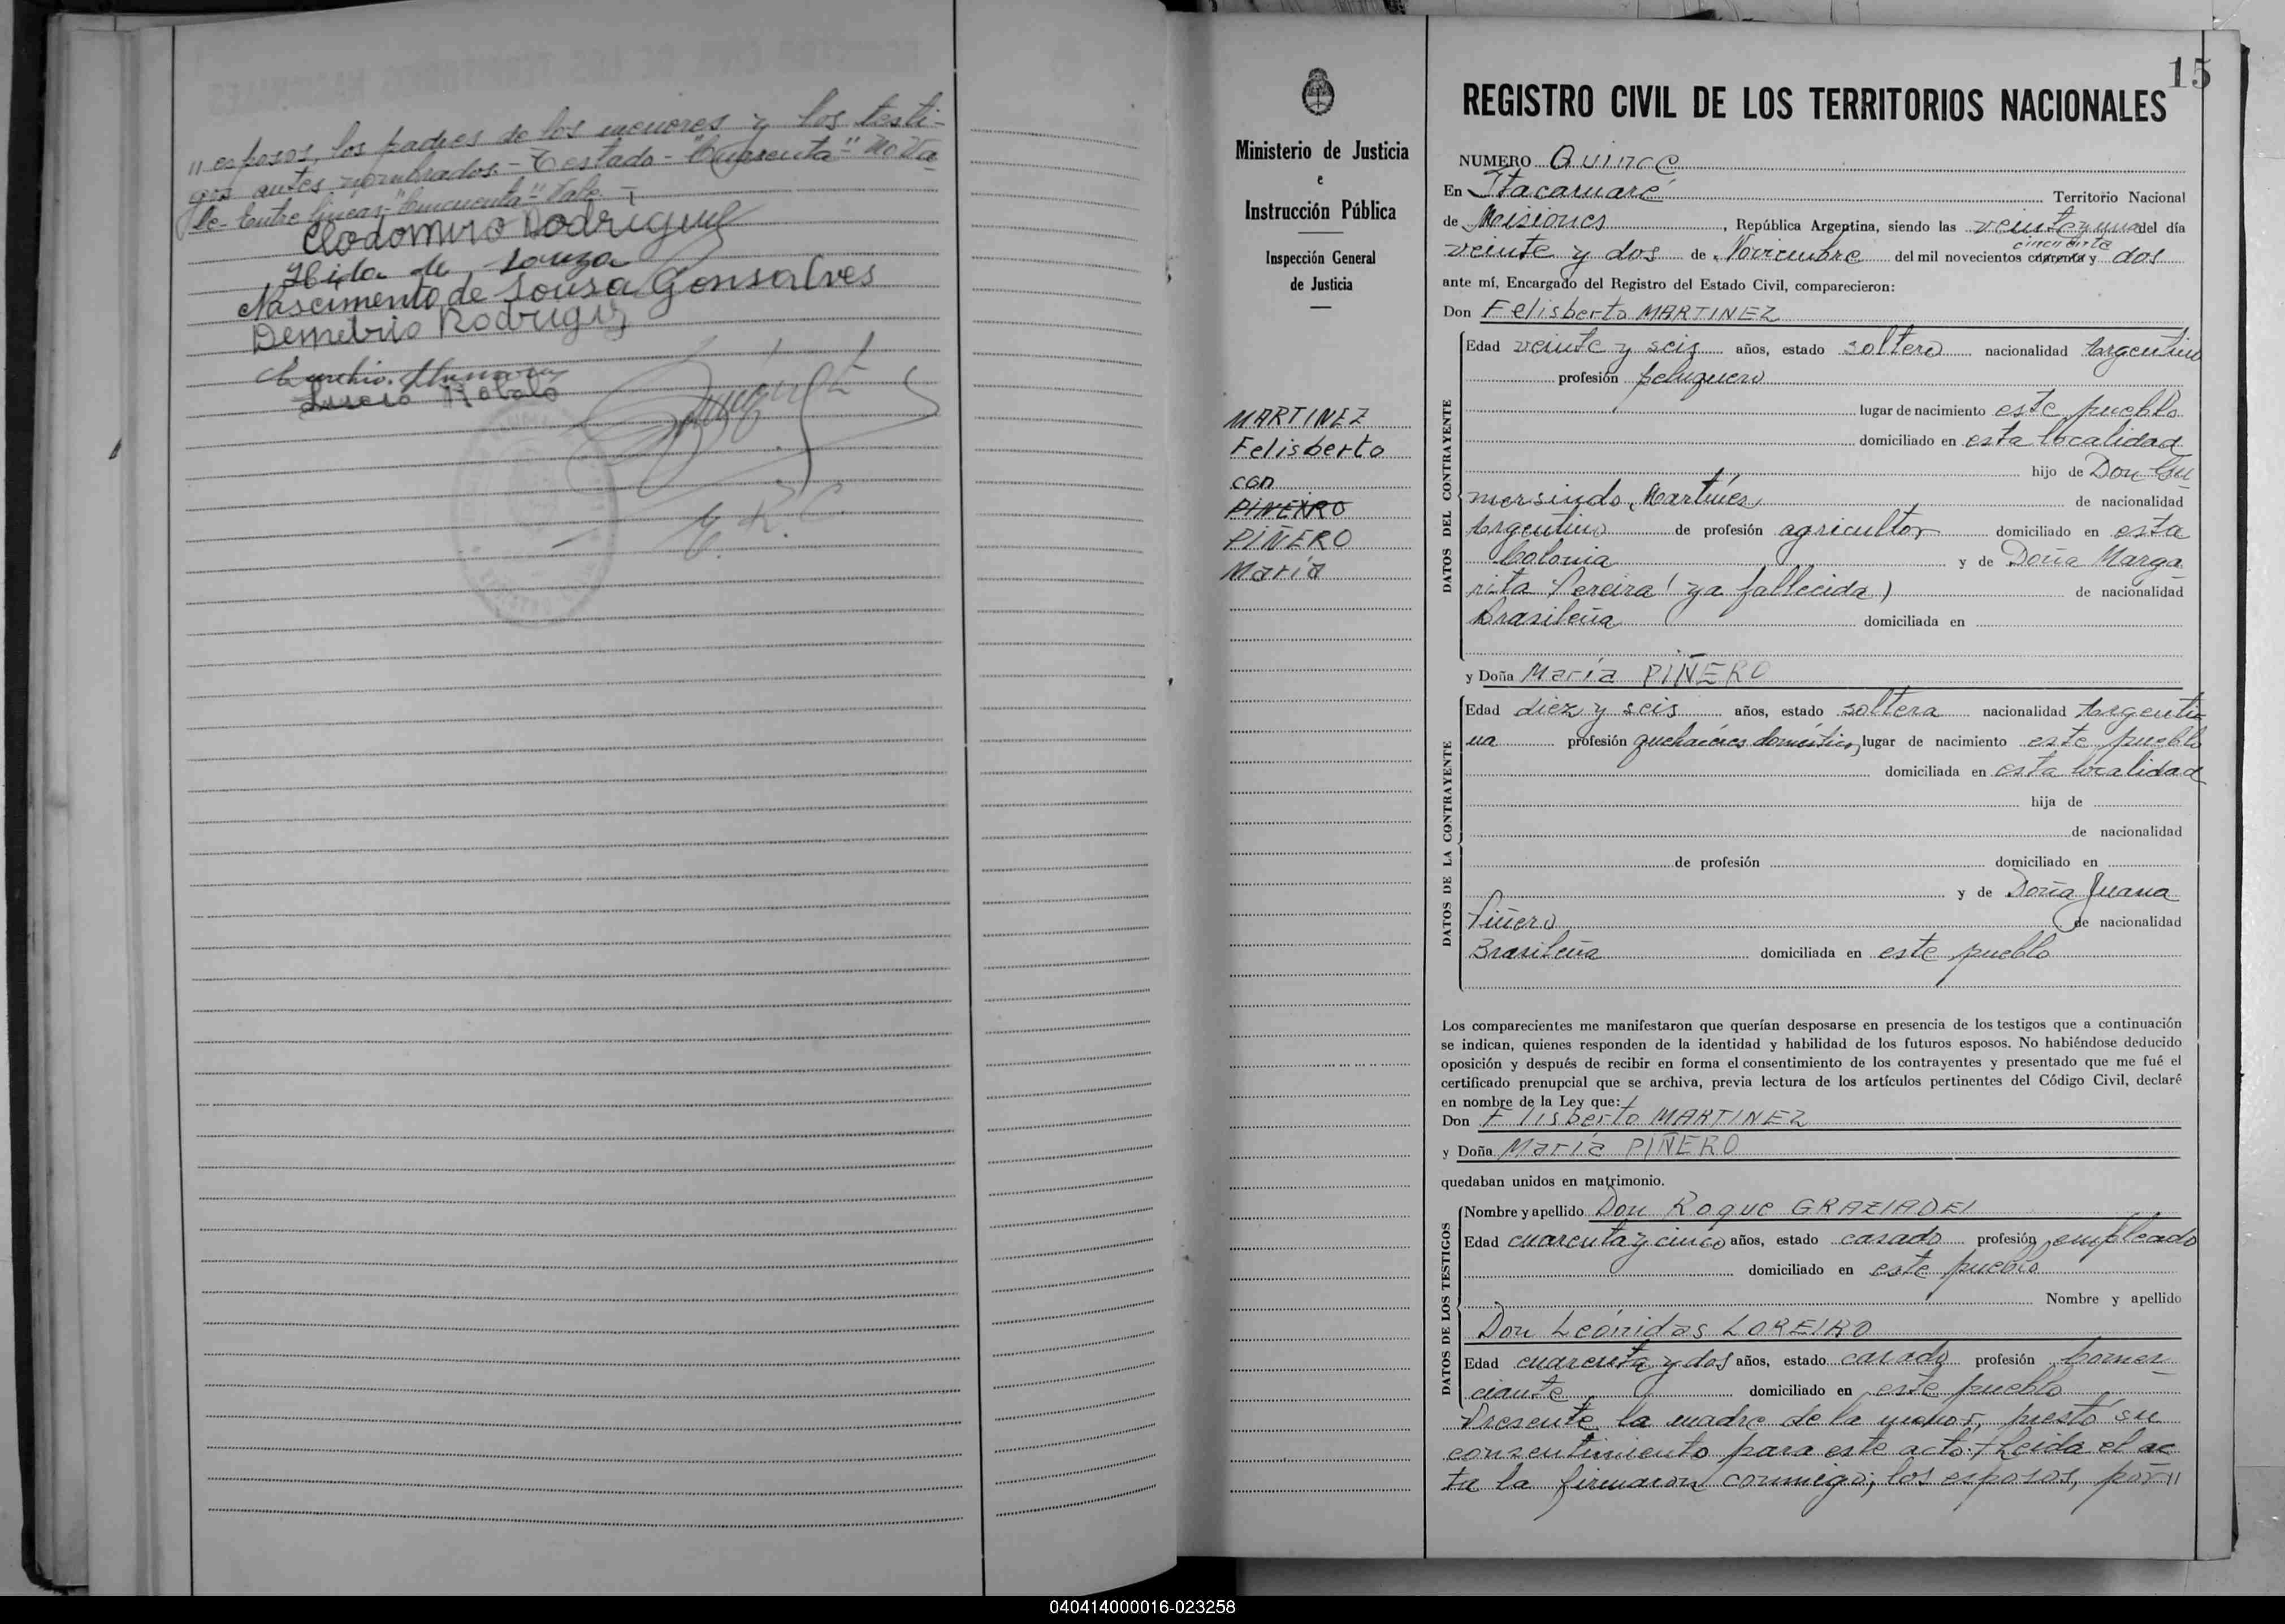 " esposos, los padres de los menores y los testi-
gos antes nombrados.- Testado - "Cuarenta" No Va
le- Entre lineas- "Cincuenta" - Vale. -
Clodomiro Rodriguez
Hida de Souza
Nascimento de Sousa Gonsalves
Demetrio Rodriguiz
Lucero Robalo
15
Ministerio de Justicia
e
Instrucción Pública
Inspección General
de Justicia
MARTINEZ
Felisberto
con
PINEIRO
PIÑERO
María
REGISTRO CIVIL DE LOS TERRITORIOS NACIONALES
NUMERO Quince
En Itacaruaré Territorio Nacional
de Misiones, República Argentina, siendo las veinte y una del día
cincuenta
veinte y dos de Noviembre del mil novecientos cuarenta y dos
ante mí, Encargado del Registro del Estado Civil, comparecieron:
Don Felisberto MARTINEZ
DATOS DEL CONTRAYENTE
Edad veinte y seis años, estado soltero nacionalidad Argentino
profesión peluquero
lugar de nacimiento este pueblo
domiciliado en esta localidad
hijo de Don Gu
mersindo Martínes de nacionalidad
Argentino de profesión agricultor domiciliado en esta
Colonia y de Doña Marga
rita Pereira (ya fallecida) de nacionalidad
Brasileña domiciliada en
y Doña María PIÑERO
DATOS DE LA CONTRAYENTE
Edad diez y seis años, estado soltera nacionalidad Argenti-
na profesión quehaceres domésticos, lugar de nacimiento este pueblo
domiciliada en esta localidad
hija de
de nacionalidad
de profesión domiciliado en
y de Doña Juana
Piñero de nacionalidad
Brasileña domiciliada en este pueblo
Los comparecientes me manifestaron que querían desposarse en presencia de los testigos que a continuación
se indican, quienes responden de la identidad y habilidad de los futuros esposos. No habiéndose deducido
oposición y después de recibir en forma el consentimiento de los contrayentes y presentado que me fué el
certificado prenupcial que se archiva, previa lectura de los artículos pertinentes del Código Civil, declaré
en nombre de la Ley que:
Don F lisberto MARTINEZ
y Doña María PIÑERO
quedaban unidos en matrimonio.
DATOS DE LOS TESTIGOS
Nombre y apellido Don Roque GRAZIADEI
Edad cuarenta y cinco años, estado casado profesión empleado
domiciliado en este pueblo
Nombre y apellido
Don Leónidas LOREIRO
Edad cuarenta y dos años, estado casado profesión Comer
ciante domiciliado en este pueblo
Presente la madre de la menor, prestó su
consentimiento para este acto. + Leida el ac
ta la firmaron conmigo; los esposos, por "
040414000016-023258